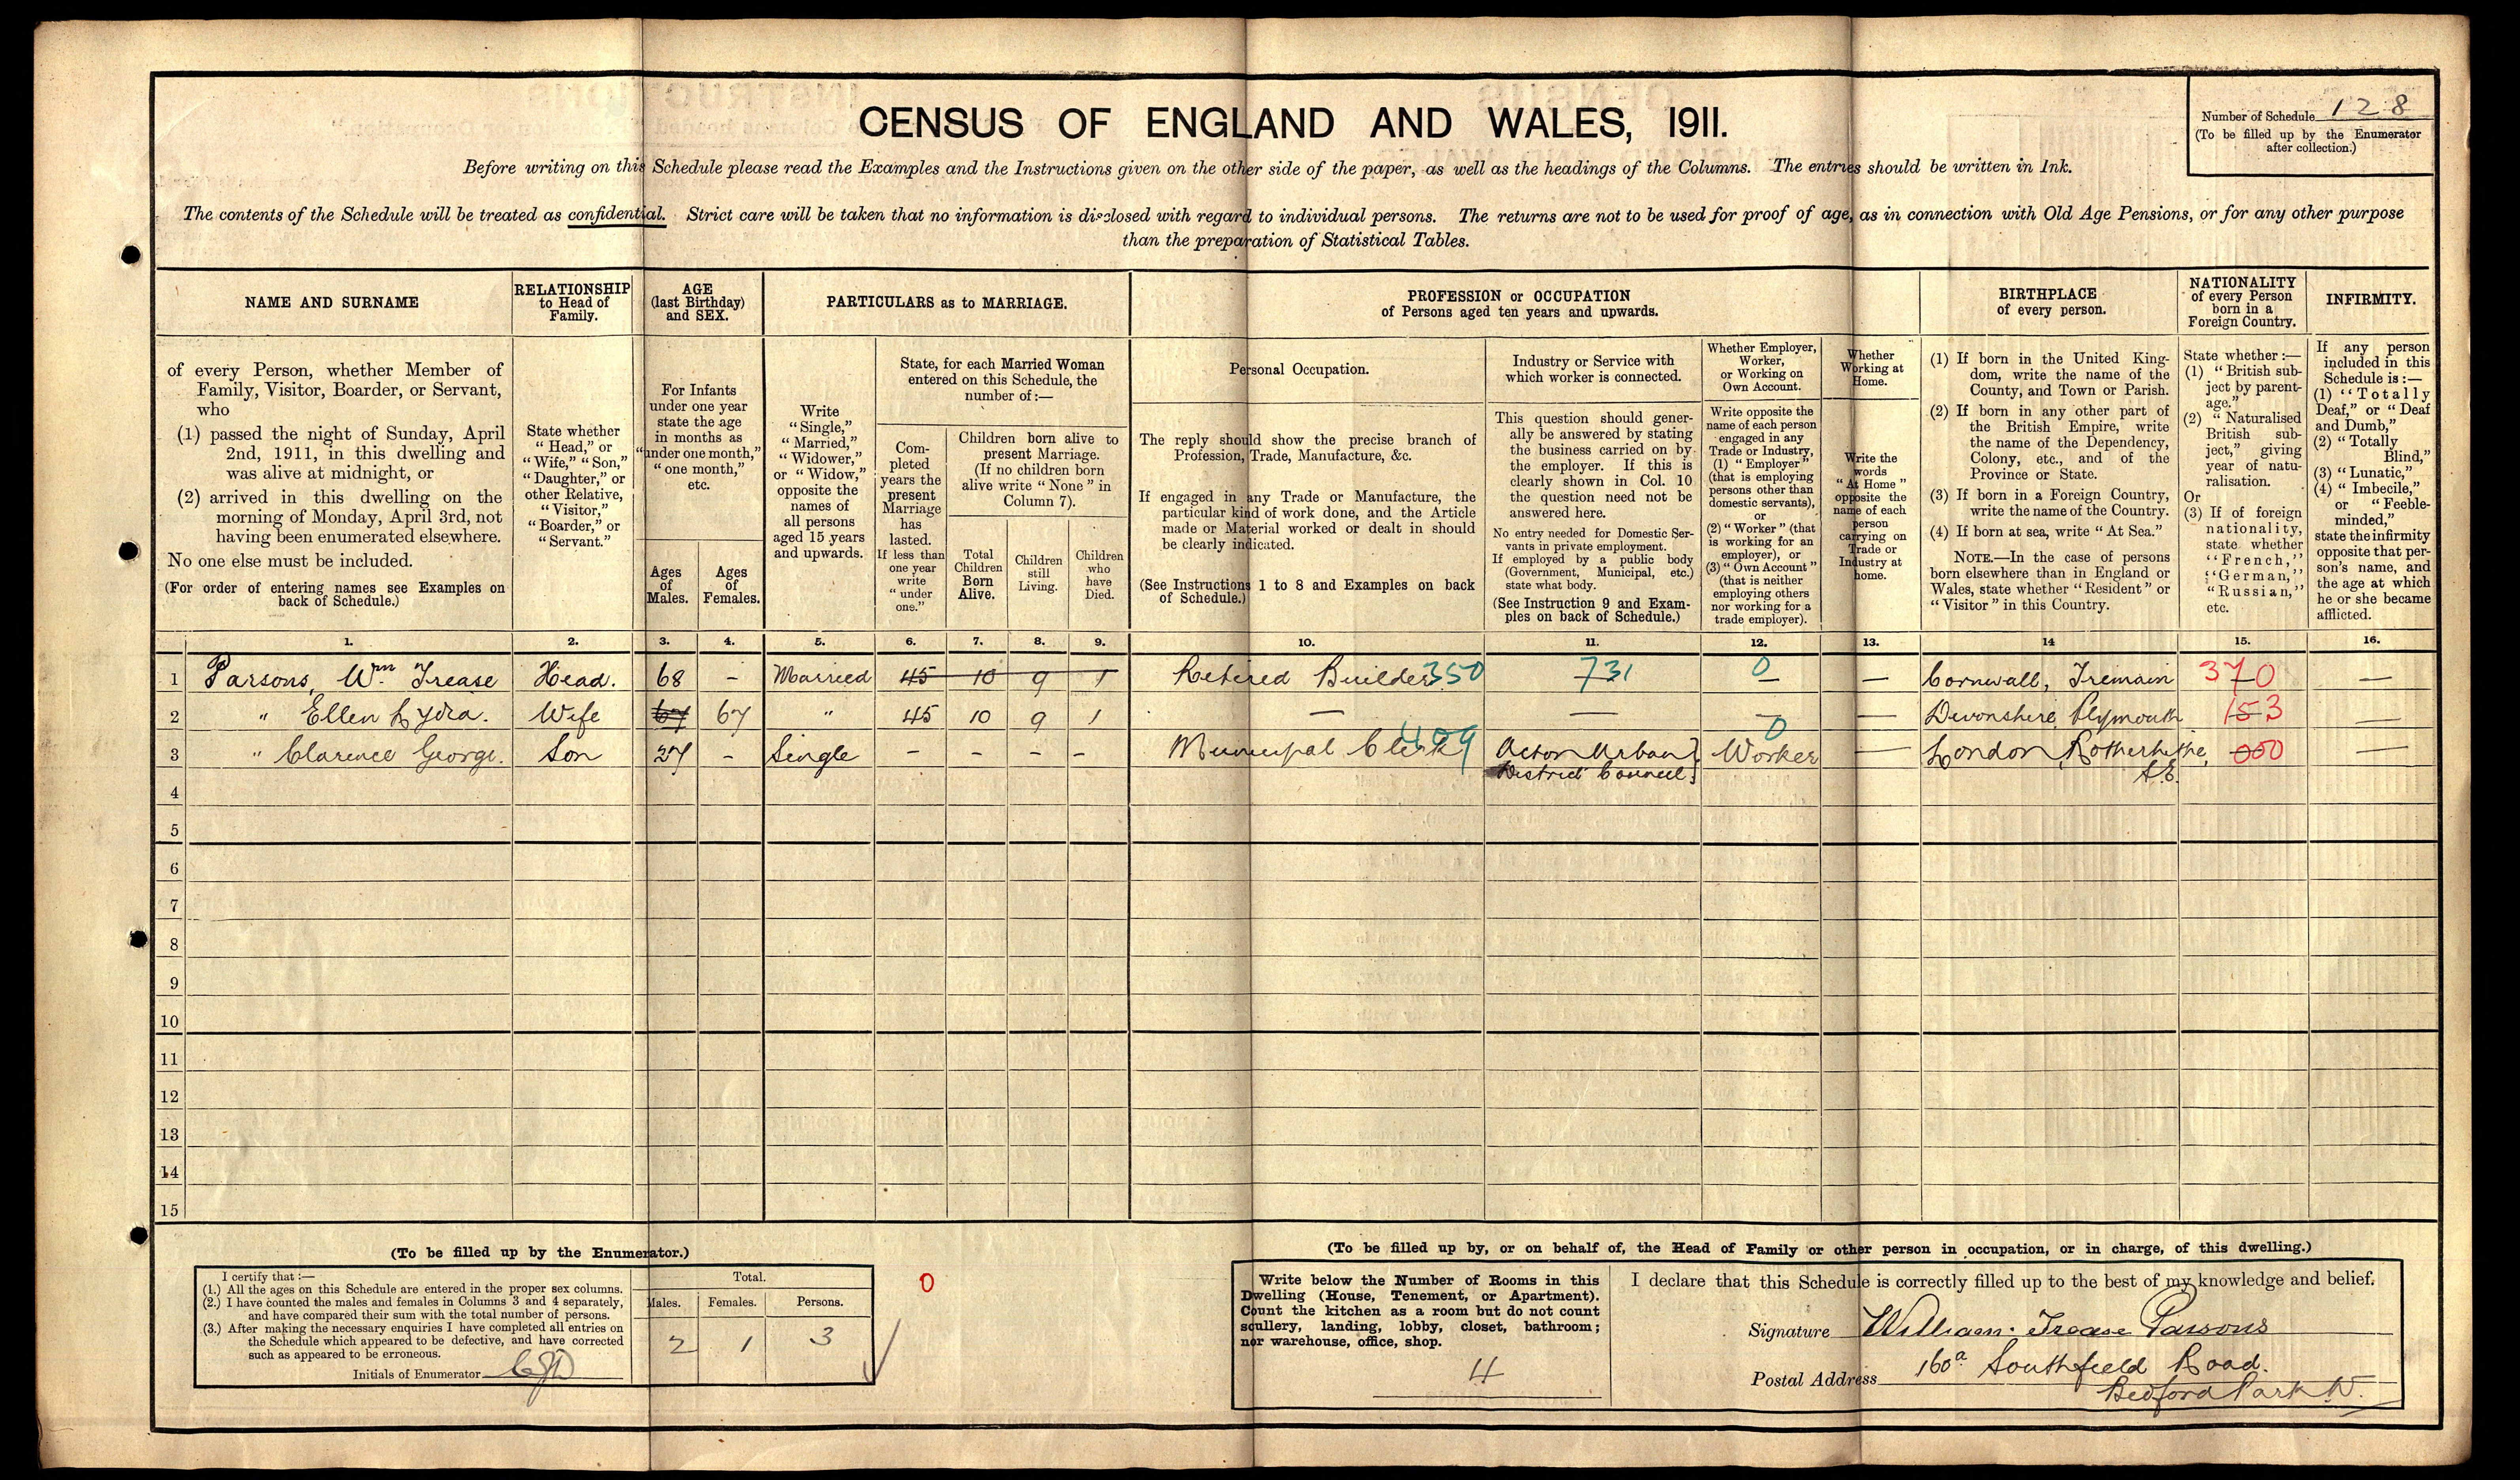 CENSUS OF ENGLAND AND WALES, 1911.
Number of Schedule 128
(To be filled up by the Enumerator
after collection.)
Before writing on this Schedule please read the Examples and the Instructions given on the other side of the paper, as well as the headings of the Columns. The entries should be written in Ink.
The contents of the Schedule will be treated as confidential. Strict care will be taken that no information is disclosed with regard to individual persons. The returns are not to be used for proof of age, as in connection with Old Age Pensions, or for any other purpose
than the preparation of Statistical Tables.
NAME AND SURNAME
of every Person, whether Member of
Family, Visitor, Boarder, or Servant,
who
(1) passed the night of Sunday, April
2nd, 1911, in this dwelling and
was alive at midnight, or
(2) arrived in this dwelling on the
morning of Monday, April 3rd, not
having been enumerated elsewhere.
No one else must be included.
(For order of entering names see Examples on
back of Schedule.)
RELATIONSHIP
to Head of
Family.
State whether
"Head," or
"Wife," "Son,"
"Daughter," or
other Relative,
"Visitor,"
"Boarder," or
"Servant."
AGE
(last Birthday)
and SEX.
For Infants
under one year
state the age
in months as
"under one month,"
"one month,"
etc.
Ages
of
Males.
Ages
of
Females.
PARTICULARS as to MARRIAGE.
Write
"Single,"
"Married,"
"Widower,"
or "Widow,"
opposite the
names of
all persons
aged 15 years
and upwards.
State, for each Married Woman
entered on this Schedule, the
number of:—
Com-
pleted
years the
present
Marriage
has
lasted.
If less than
one year
write
"under
one."
Children born alive to
present Marriage.
(If no children born
alive write "None" in
Column 7).
Total
Children
Born
Alive.
Children
still
Living.
Children
who
have
Died.
PROFESSION or OCCUPATION
of Persons aged ten years and upwards.
Personal Occupation.
The reply should show the precise branch of
Profession, Trade, Manufacture, &c.
If engaged in any Trade or Manufacture, the
particular kind of work done, and the Article
made or Material worked or dealt in should
be clearly indicated.
(See Instructions 1 to 8 and Examples on back
of Schedule.)
Industry or Service with
which worker is connected.
This question should gener-
ally be answered by stating
the business carried on by
the employer. If this is
clearly shown in Col. 10
the question need not be
answered here.
No entry needed for Domestic Ser-
vants in private employment.
If employed by a public body
(Government, Municipal, etc.)
state what body.
(See Instruction 9 and Exam-
ples on back of Schedule.)
Whether Employer,
Worker,
or Working on
Own Account.
Write opposite the
name of each person
engaged in any
Trade or Industry,
(1) "Employer"
(that is employing
persons other than
domestic servants),
or
(2) "Worker" (that
is working for an
employer), or
(3) "Own Account"
(that is neither
employing others
nor working for a
trade employer).
Whether
Working at
Home.
Write the
words
"At Home"
opposite the
name of each
person
carrying on
Trade or
Industry at
home.
BIRTHPLACE
of every person.
(1) If born in the United King-
dom, write the name of the
County, and Town or Parish.
(2) If born in any other part of
the British Empire, write
the name of the Dependency,
Colony, etc., and of the
Province or State.
(3) If born in a Foreign Country,
write the name of the Country.
(4) If born at sea, write "At Sea."
NOTE.—In the case of persons
born elsewhere than in England or
Wales, state whether "Resident" or
"Visitor" in this Country.
NATIONALITY
of every Person
born in a
Foreign Country.
State whether:—
(1) "British sub-
ject by parent-
age."
(2) "Naturalised
British sub-
ject," giving
year of natu-
ralisation.
Or
(3) If of foreign
nationality,
state whether
"French,"
"German,"
"Russian,"
etc.
INFIRMITY.
If any person
included in this
Schedule is:—
(1) "Totally
Deaf," or "Deaf
and Dumb,"
(2) "Totally
Blind,"
(3) "Lunatic,"
(4) "Imbecile,"
or "Feeble-
minded,"
state the infirmity
opposite that per-
son's name, and
the age at which
he or she became
afflicted.
1. 2. 3. 4. 5. 6. 7. 8. 9. 10. 11. 12. 13. 14 15. 16.
1 Parsons, Wm Trease Head. 68 – Married 45 10 9 1 Retired Builder 350 731 0 — — Cornwall, Tremain 370 —
2 " Ellen Lydia. Wife 67 67 " 45 10 9 1 — — — — Devonshire, Plymouth 153 —
3 " Clarence George. Son 27 – Single – – – – Municipal Clerk 409 Acton Urban 0 Worker — London, Rotherhithe, 000 —
District Council S.E.
4
5
6
7
8
9
10
11
12
13
14
15
(To be filled up by the Enumerator.)
I certify that:—
(1.) All the ages on this Schedule are entered in the proper sex columns.
(2.) I have counted the males and females in Columns 3 and 4 separately,
and have compared their sum with the total number of persons.
(3.) After making the necessary enquiries I have completed all entries on
the Schedule which appeared to be defective, and have corrected
such as appeared to be erroneous.
Initials of Enumerator
Total.
Males. Females. Persons.
2 1 3
0
(To be filled up by, or on behalf of, the Head of Family or other person in occupation, or in charge, of this dwelling.)
Write below the Number of Rooms in this
Dwelling (House, Tenement, or Apartment).
Count the kitchen as a room but do not count
scullery, landing, lobby, closet, bathroom;
nor warehouse, office, shop.
4
I declare that this Schedule is correctly filled up to the best of my knowledge and belief.
Signature William Trease Parsons
Postal Address 160a Southfield Road.
Bedford Park W.